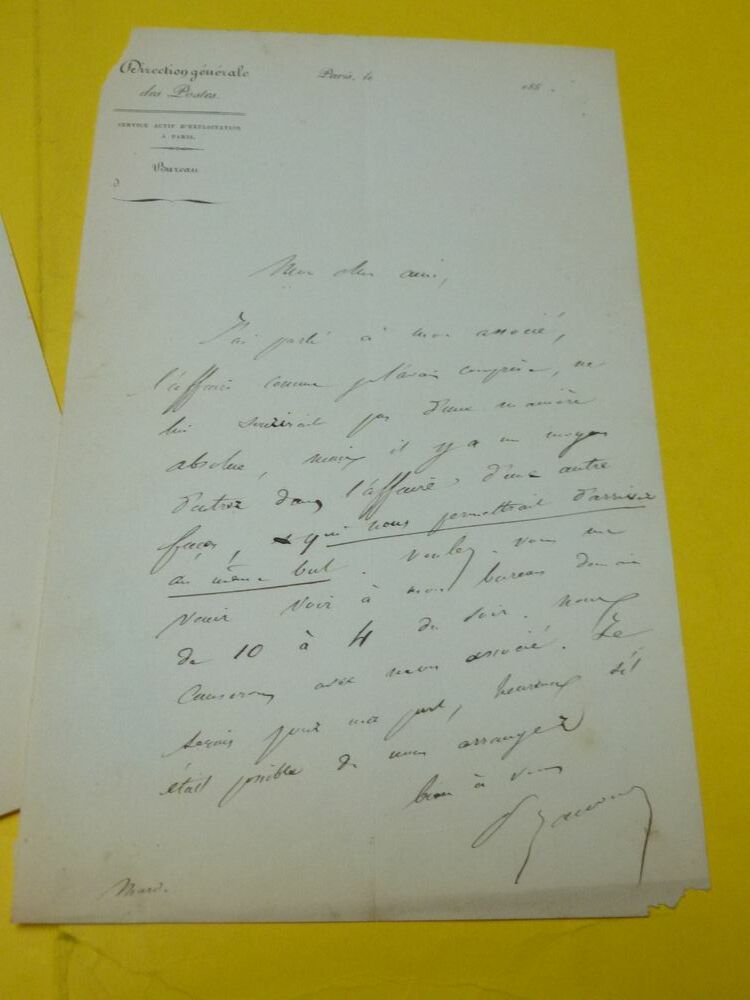 Direction générale
des Postes.
Paris, le 185 .
SERVICE ACTIF D'EXPLOITATION
À PARIS.
Bureau
d
Mon cher ami,
J'ai parlé à mon associé,
l'affaire comme je l'avais comprise, ne
lui sourirait pas d'une manière
absolue, mais il y a un moyen
d'entrer dans l'affaire d'une autre
façon, qui nous permettrait d'arriver
au même but. Voulez-vous me
venir voir à mon bureau demain
de 10 à 4 du soir. nous
causerons avec mon associé. Je
serais pour ma part, heureux s'il
était possible de nous arranger
bien à vous